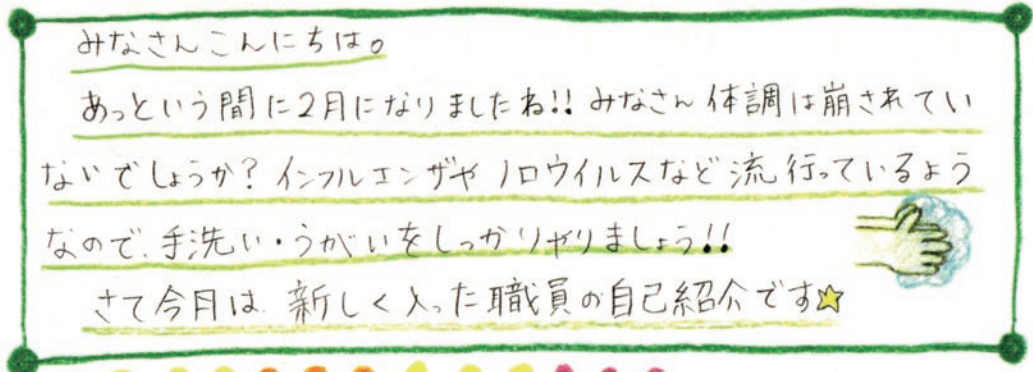 みなさんこんにちは。
あっという間に2月になりましたね!! みなさん体調は崩されてい
ないでしょうか? インフルエンザやノロウイルスなど流行っているよう
なので、手洗い・うがいをしっかりやりましょう!!
さて今月は、新しく入った職員の自己紹介です☆